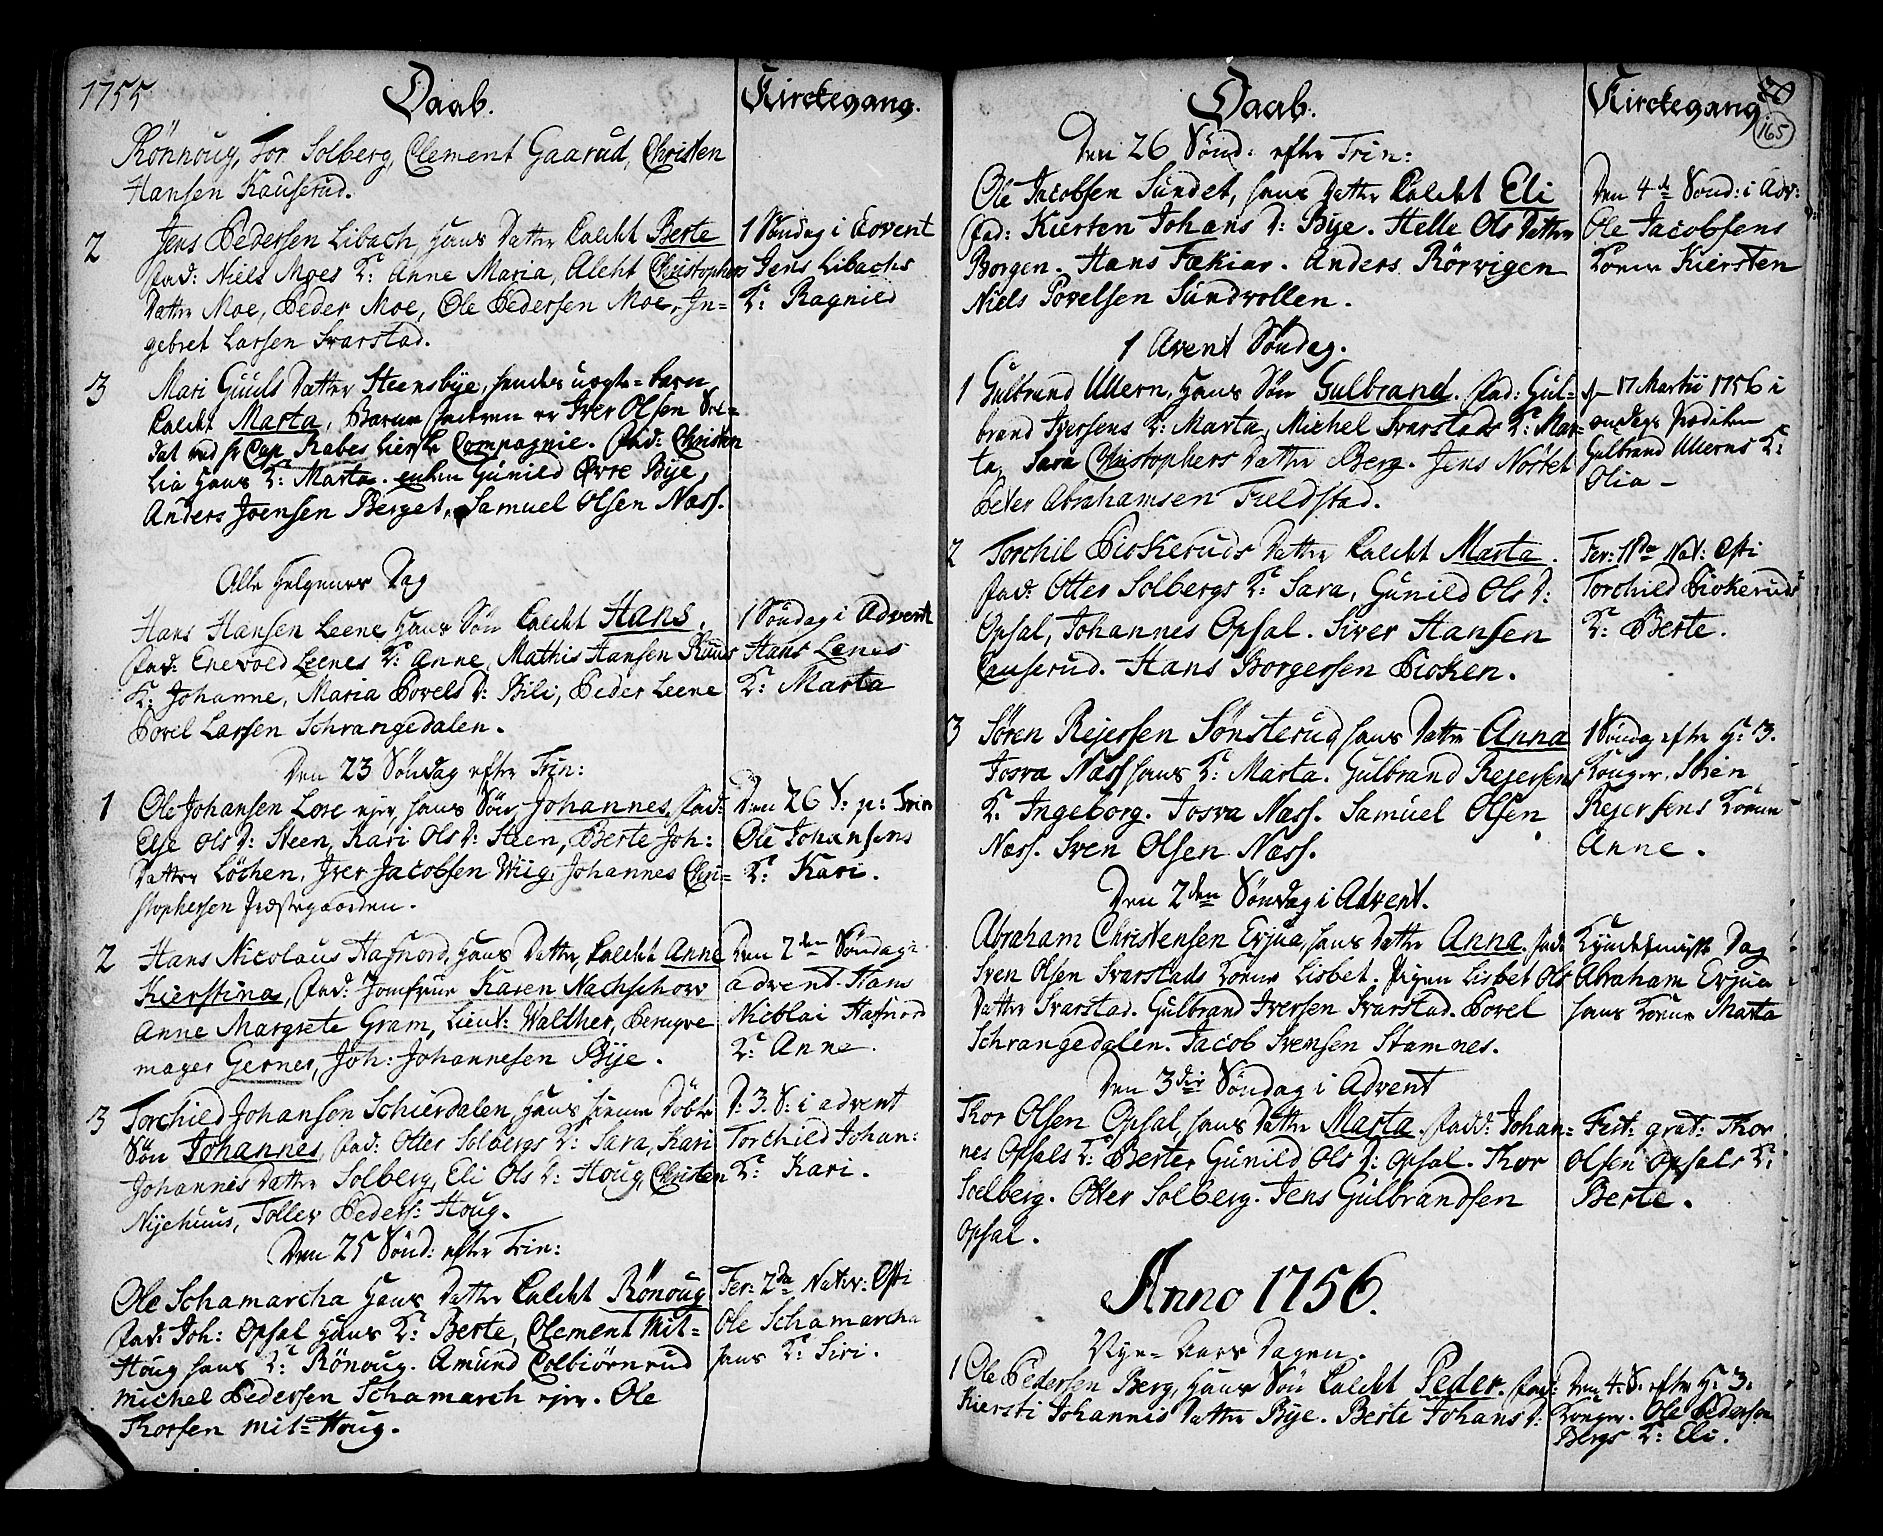 1755
Daab.
Kirckegang.
Rönnoug, Tor Solberg, Clement Gaarud, Christen
Hansen Kauserud.
2 Jens Pedersen Libach, hans datter kaldet Berte
fad: Niels Moes K: Anne Maria, Aleht Christophers
datter Moe, Peder Moe, Ole Pedersen Moe, In-
gebret Larsen Svarstad.
1 Söndag i Advent
Jens Libachs
K: Ragnild
3 Mari Guuls datter Steensbye, hendes uægte=barn
kaldet Marta, Barne faderen er Iver Olsen Sol=
dat ved Cap Rabes Compagnie. fad: Christen
Lia hans K: Marta. enken Gunild Øvre Bye,
Anders Joensen Berget, Samuel Olsen Næss.
Alle Helgenes Dag
Hans Hansen Leene, hans Sön kaldet Hans.
fad: Enevold Leenes K: Anne, Mathis Hansen Ruuds
K: Johanne, Maria Povels D: Bili, Peder Leene
Povel Larsen Schrangedalen.
1 Söndag i Advent
Hans Lenes
K: Marta
Den 23 Söndag efter Trin:
1 Ole Johansen Lore ejer, hans Sön Johannes. fad:
Else Ols D: Steen, Kari Ols D: Steen, Berte Joh:
datter Löchen, Iver Jacobsen Wiig, Johannes Chri=
stophersen Præstegaarden.
Den 26 S: p: Trin
Ole Johansens
K: Kari.
2 Hans Nicolaus Hafnord, hans datter, kaldet Anne
Kierstina, fad: Jomfrue Karen Nachschow
Anne Margrete Gram, Lieut: Walther, Perugve
mager Gerner, Joh: Johannesen Bye.
Den 2den Söndag i
advent. Hans
Nicolai Hafnord
K: Anne.
3 Torchild Johansen Schierdalen, hans hiemme Döbte
Sön Johannes, fad: Otter Solbergs K: Sara, Kari
Johannes datter Solberg, Eli Ols D: Houg, Christen
Nyehuus, Tollev Peders: Houg.
D: 3. S: i advent
Torchild Johan:
K: Kari.
Den 25 Sönd: efter Trin:
Ole Schamarcha hans datter kaldet Rönoug
fad: Joh: Opsal hans K: Berte, Clement Mit=
Houg hans K: Rönoug. Amund Colbiörnrud
Michel Pedersen Schamarch ejer. Ole
Thorsen Mit=Houg.
Fer: 2da Nativ: Csti
Ole Schamarcha
hans K: Siri.
Daab.
Kirckegang
165
Den 26 Sönd: efter Trin:
Ole Jacobsen Sundet, hans datter kaldet Eli
fad: Kiersten Johans D: Bye. Helle Ols datter
Borgen. Hans Fækiar. Anders Rörvigen
Niels Povelsen Sundvollen.
Den 4de Sönd: i Adv:
Ole Jacobsens
Kone Kiersten
1 Avent Söndag.
1 Gulbrand Ullern, hans Sön Gulbrand. fad: Gul=
brand Iversens K: Marta, Michel Svarstads K: Mar=
ta, Sara Christophers datter Berg. Jens Nörtet
Peter Abrahamsen Fieldstad.
17 Martii 1756 i
onsdags prædiken
Gulbrand Ullerns K:
Olia -
2 Torchil Piokeruds datter kaldet Marta.
fad: Otter Solbergs K: Sara, Gunild Ols D:
Opsal, Johannes Opsal. Siver Hansen
Causerud. Hans Borgersen Pioken.
Fer: Nat: Csti
Torchild Piokeruds
K: Berte.
3 Sören Rejersen Sönsterud, hans datter Anna
Josva Næss hans K: Marta. Gulbrand Rejersens
K: Ingeborg. Josva Næss. Samuel Olsen
Næss. Sven Olsen Næss.
1 Söndag efter H: 3.
Konger. Sören
Rejersens Kone
Anne.
Den 2den Söndag i Advent.
Abraham Christensen Erjua, hans datter Anna. fad:
Sven Olsen Svarstads Kone Lisbet. Pigen Lisbet Ols
datter Svarstad. Gulbrand Iversen Svarstad. Povel
Schrangedalen. Jacob Svensen Stamnes.
Kyndelmisse Dag
Abraham Erjua
hans Kone Marta
Den 3die Söndag i Advent
Thor Olsen Opsal, hans datter Marta. fadd: Johan=
nes Opsals K: Berte, Gunild Ols D: Opsal. Thor
Soelberg. Otter Solberg. Jens Gulbrandsen
Opsal.
Fest: grat: Thor
Olsen Opsals K:
Berte.
Anno 1756.
Nye=Aars Dagen.
1 Ole Pedersen Berg, hans Sön kaldet Peder. fad:
Kiersti Johannis datter Bye. Berte Johans D:
Den 4. S. efter H: 3.
Konger. Ole Pedersen
Bergs K: Eli.